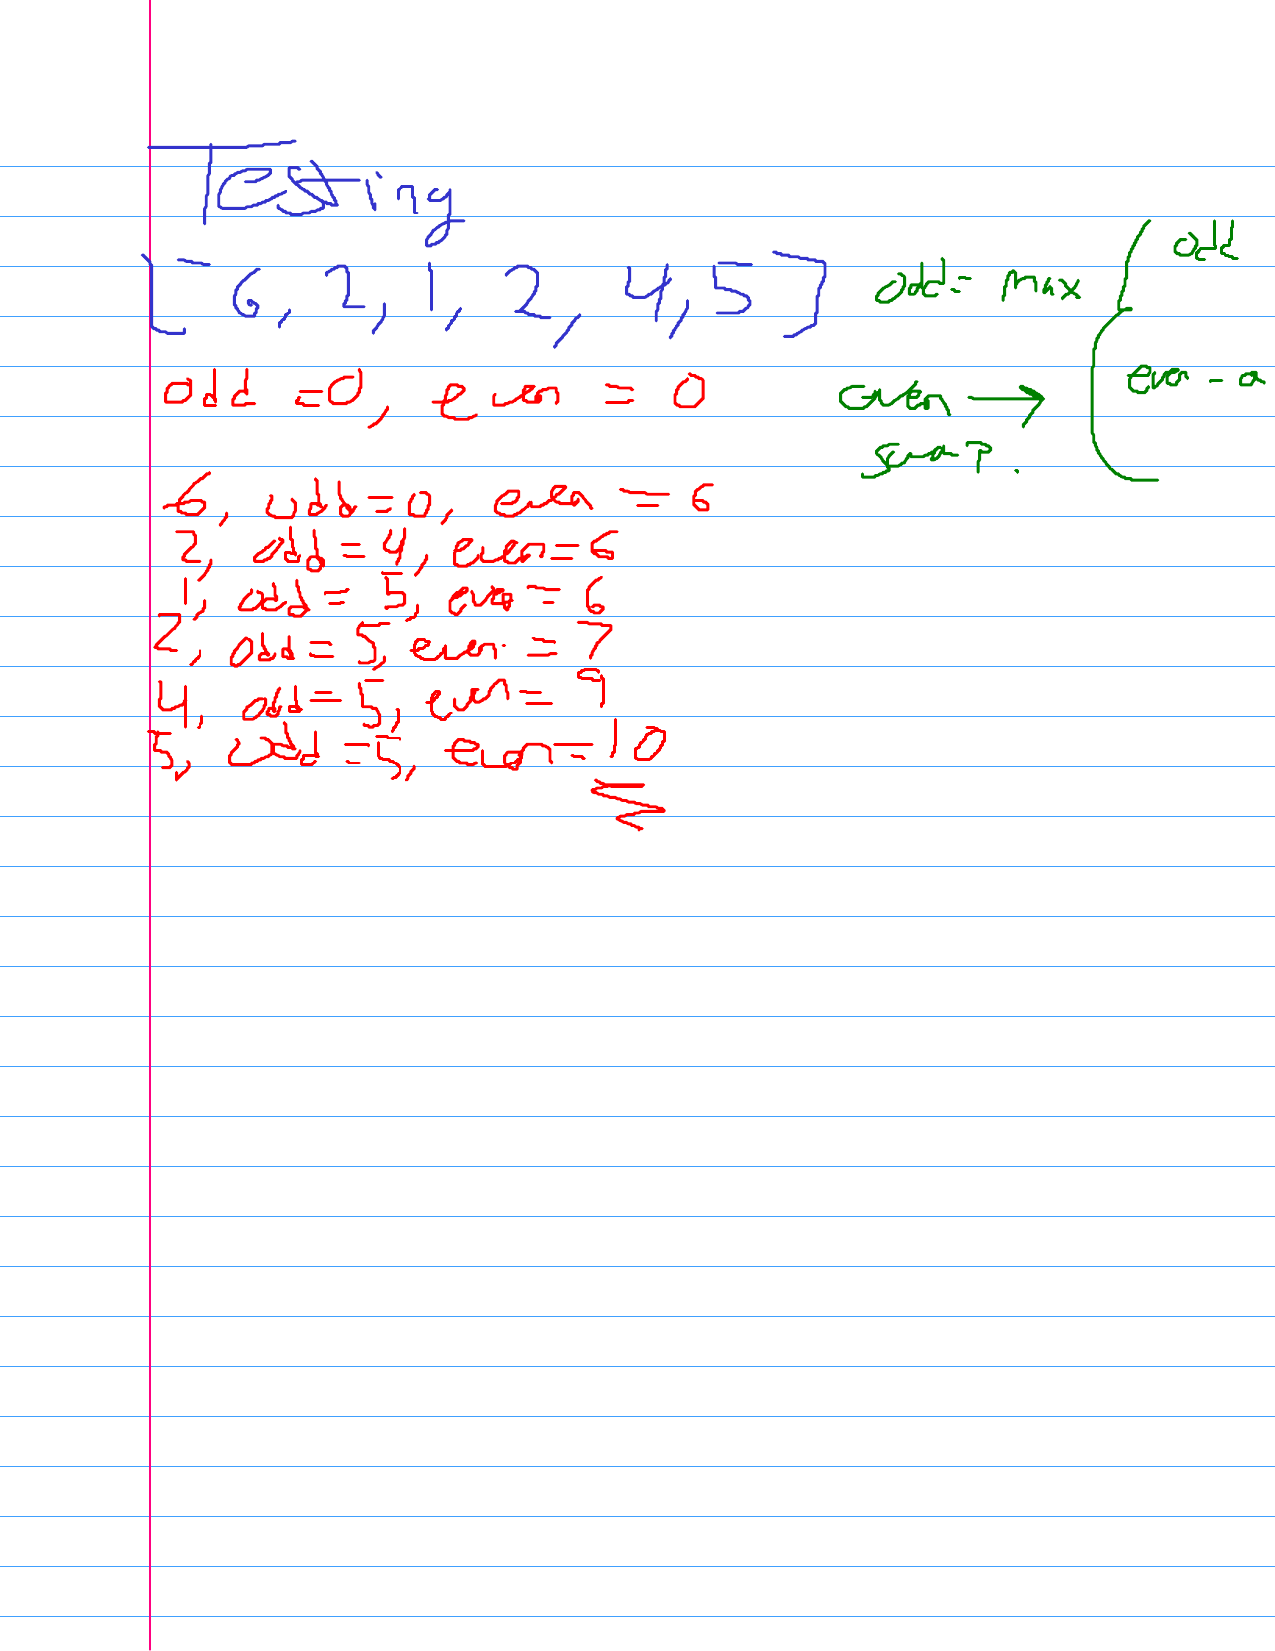 Testing
[6, 2, 1, 2, 4, 5]
odd = max ( odd
even - a
even →
swap.
odd = 0, even = 0
6, odd = 0, even = 6
2, odd = 4, even = 6
1, odd = 5, even = 6
2, odd = 5, even = 7
4, odd = 5, even = 9
5, odd = 5, even = 10